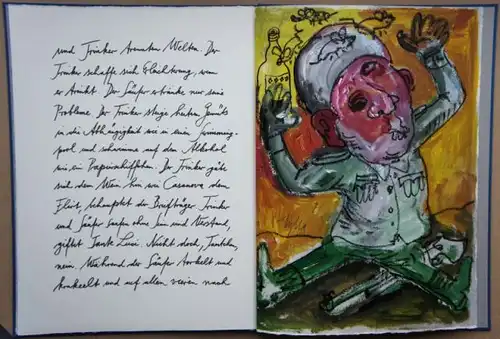 und Trinker trennten Welten. Der
Trinker schaffe sich Erleichterung, wenn
er trinkt. Der Säufer ertränke nur seine
Probleme. Der Trinker steige heiteren Gemüts
in die Abhängigkeit wie in einen Swimming-
pool und schwimme auf dem Alkohol
wie ein Papierschiffchen. Der Trinker gäbe
sich dem Wein hin wie Casanova dem
Flirt, behauptet der Briefträger. Trinker
und Säufer saufen ohne Sinn und Verstand,
giftet Tante Luci. Nicht doch, Tantchen,
nein. Während der Säufer torkelt und
krakeelt und auf allen vieren nach